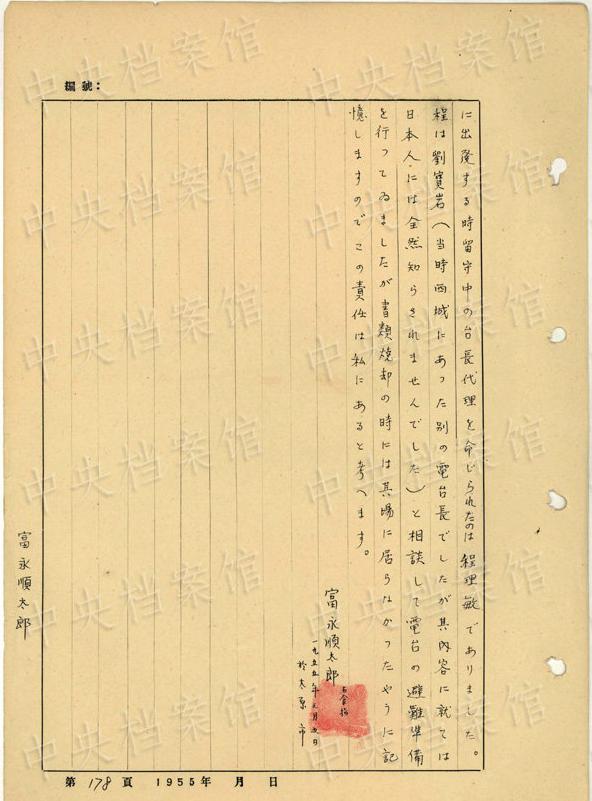 編號：
に出発する時留守中の台長代理を命じられたのは程理敏でありました。
程は劉寳岩（当時西城にあった別の電台長でしたが其内容に就ては
日本人には全然知らされませんでした）と相談して電台の避難準備
を行ってゐましたが書類焼却の時には其場に居らなかったやうに記
憶しますのでこの責任は私にあると考へます。
富永順太郎
一九五五年 月 日
於太原市
富永順太郎
第178頁 1955年 月 日
中央档案馆